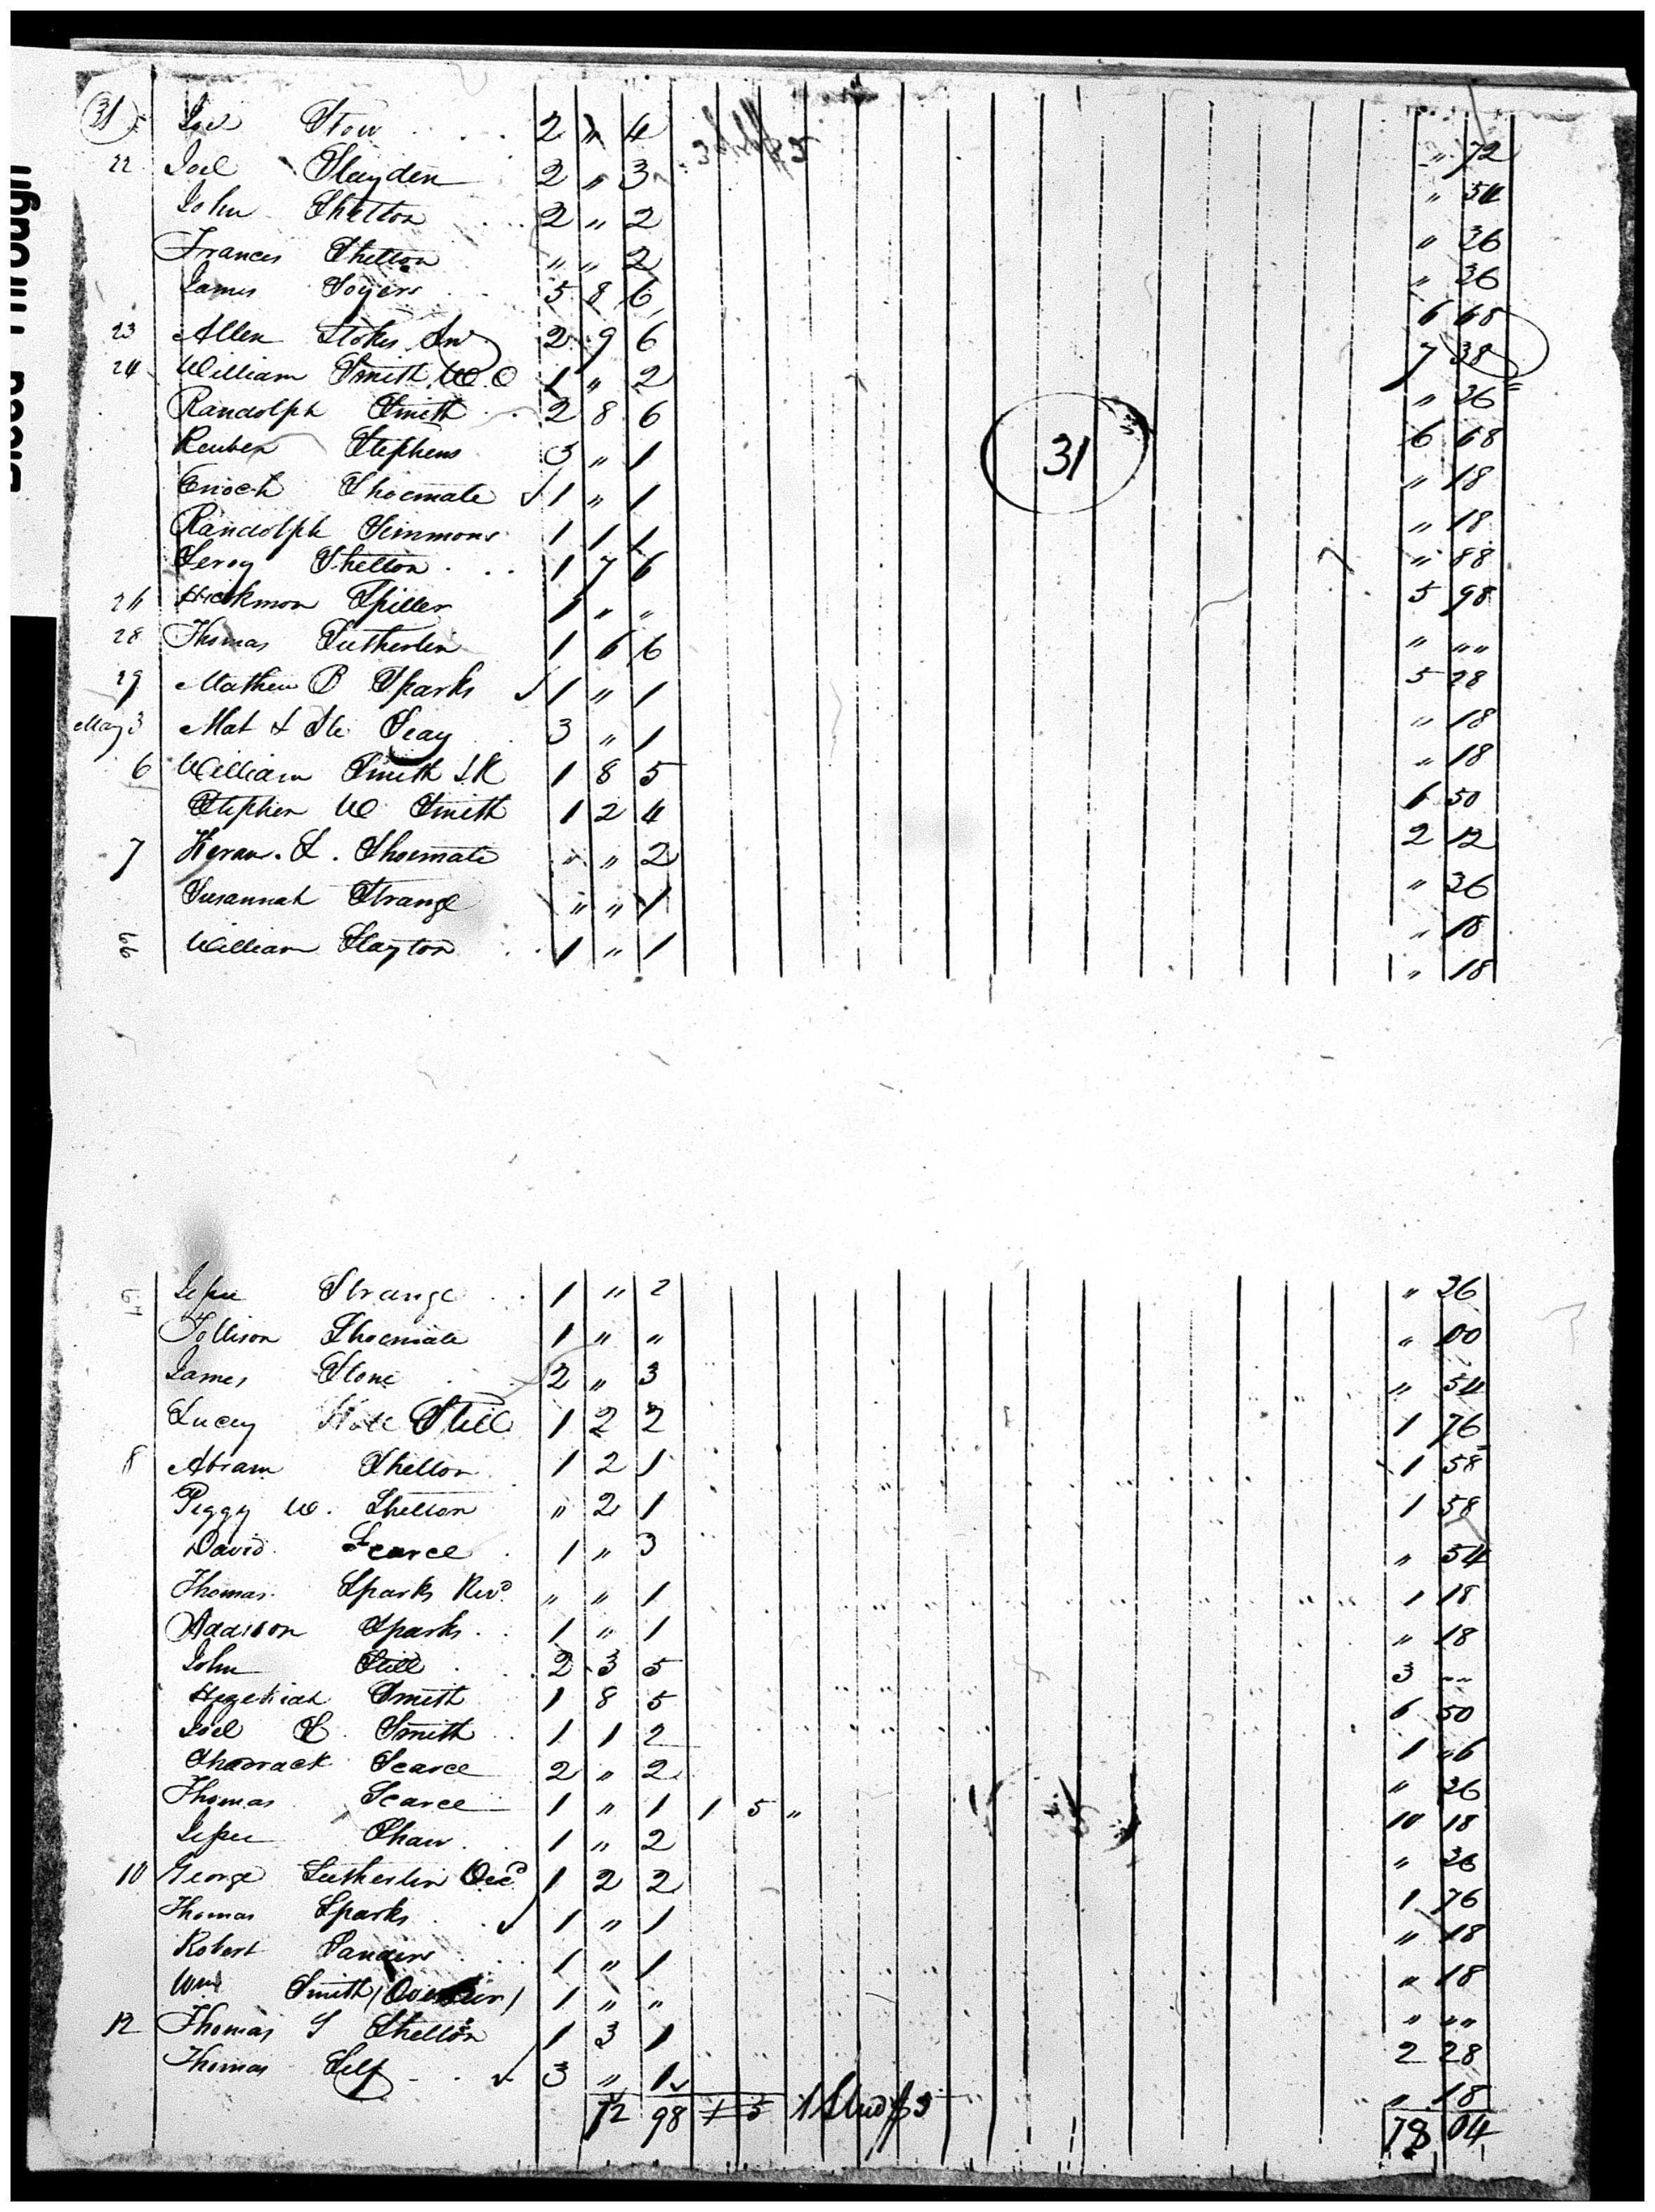 31 5 Joel Stow 2 " 4 " 72
22 Joel Slayden 2 " 3 " 54
John Shelton 2 " 2 " 36
Frances Shelton " " 2 " 36
James Soyers 5 8 6 6 68
23 Allen Stokes 2 9 6 7 38
24 William Smith W.O 1 " 2 " 36
Randolph Smith 2 8 6 6 68
31
Reuben Stephens 3 " 1 " 18
Enoch Shoemate 1 " 1 " 18
Randolph Simmons 1 1 1 " 88
Leroy Shelton 1 7 6 5 98
26 Hickmon Spiller 1 " " " " "
28 Thomas Sutherlin 1 6 6 5 28
29 Mathew B Sparks 1 " 1 " 18
May 3 Mat & Seay 3 " 1 " 18
6 William Smith 1 8 5 6 50
Stephen W Smith 1 2 4 2 12
7 Shoemate " " 2 " 36
Susannah Strange " " 1 " 18
66 William Slayton 1 " 1 " 18
67 Jesse Strange 1 " 2 " 36
Tollison Shoemate 1 " " " 00
James Stone 2 " 3 " 54
Lucey Still 1 2 2 1 76
8 Abram Shelton 1 2 1 1 58
Peggy W. Shelton " 2 1 1 58
David Scarce 1 " 3 " 54
Thomas Sparks Revd " " 1 1 18
Addison Sparks 1 " 1 " 18
John Still 2 3 5 3 --
Hezekiah Smith 1 8 5 6 50
Joel S. Smith 1 1 2 1 "6
Shadrack Scarce 2 " 2 " 36
Thomas Scarce 1 " 1 1 5 " 10 18
Jesse Shaw 1 " 2 " 36
10 George Sutherlin Decd 1 2 2 1 76
Thomas Sparks 1 " 1 " 18
Robert Sanders 1 " 1 " 18
Wm Smith (Overseer) 1 " " " " "
12 Thomas S Shelton 1 3 1 2 28
Thomas Self 3 " 1 " 18
72 98 1 5 1 Stud $5 78 04